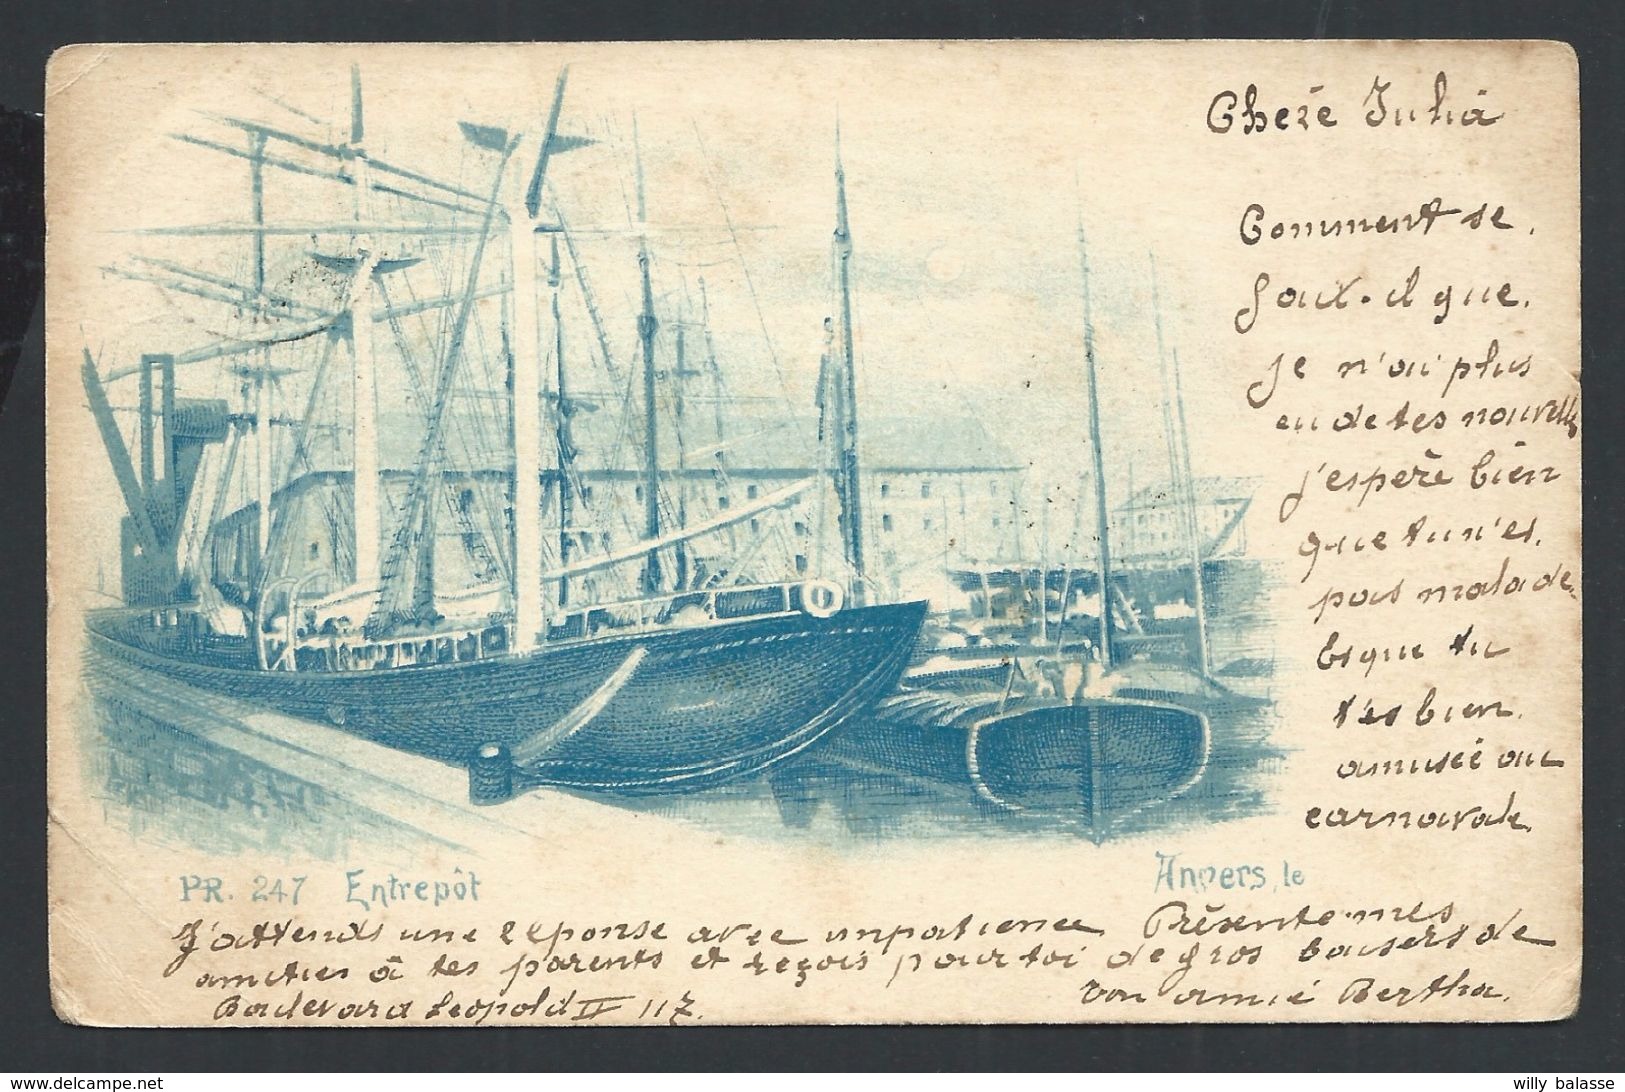 Cheré Julia
Comment se
faix-il que
je n'ai plus
eu de tes nouvelles
j'espère bien
que tu n'es
pas malade
que tu
t'es bien
amusée au
carnavale
PR. 247 Entrepôt
Anvers, le
J'attends une réponse avec impatience Présente mes
amitiés à tes parents et reçois pour toi de gros baisers de
Boulevard Leopold II 117.
ton amie Bertha.
willy balasse